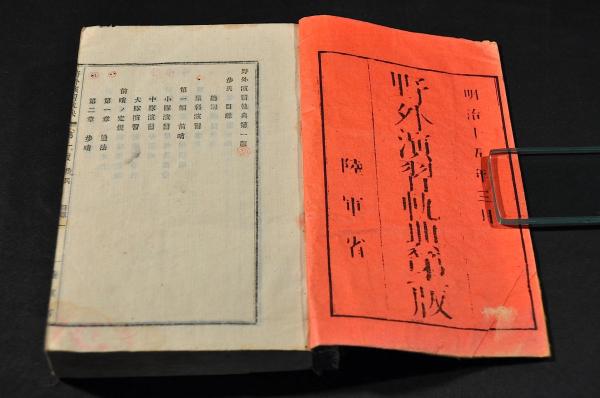 明治十五年三月
野外演習軌典第一版
陸軍省
野外演習軌典第一版
歩兵 目録
総則
単務演習
第一部 前哨
小隊演習
中隊演習
大隊演習
前哨ノ定規
第一章 通法
第二章 歩哨